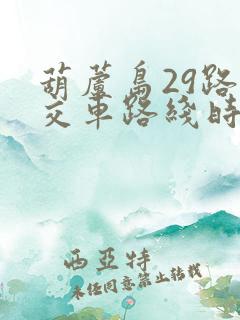 葫蘆島29路
交車路綫時
西亞特
未经同意禁止转载